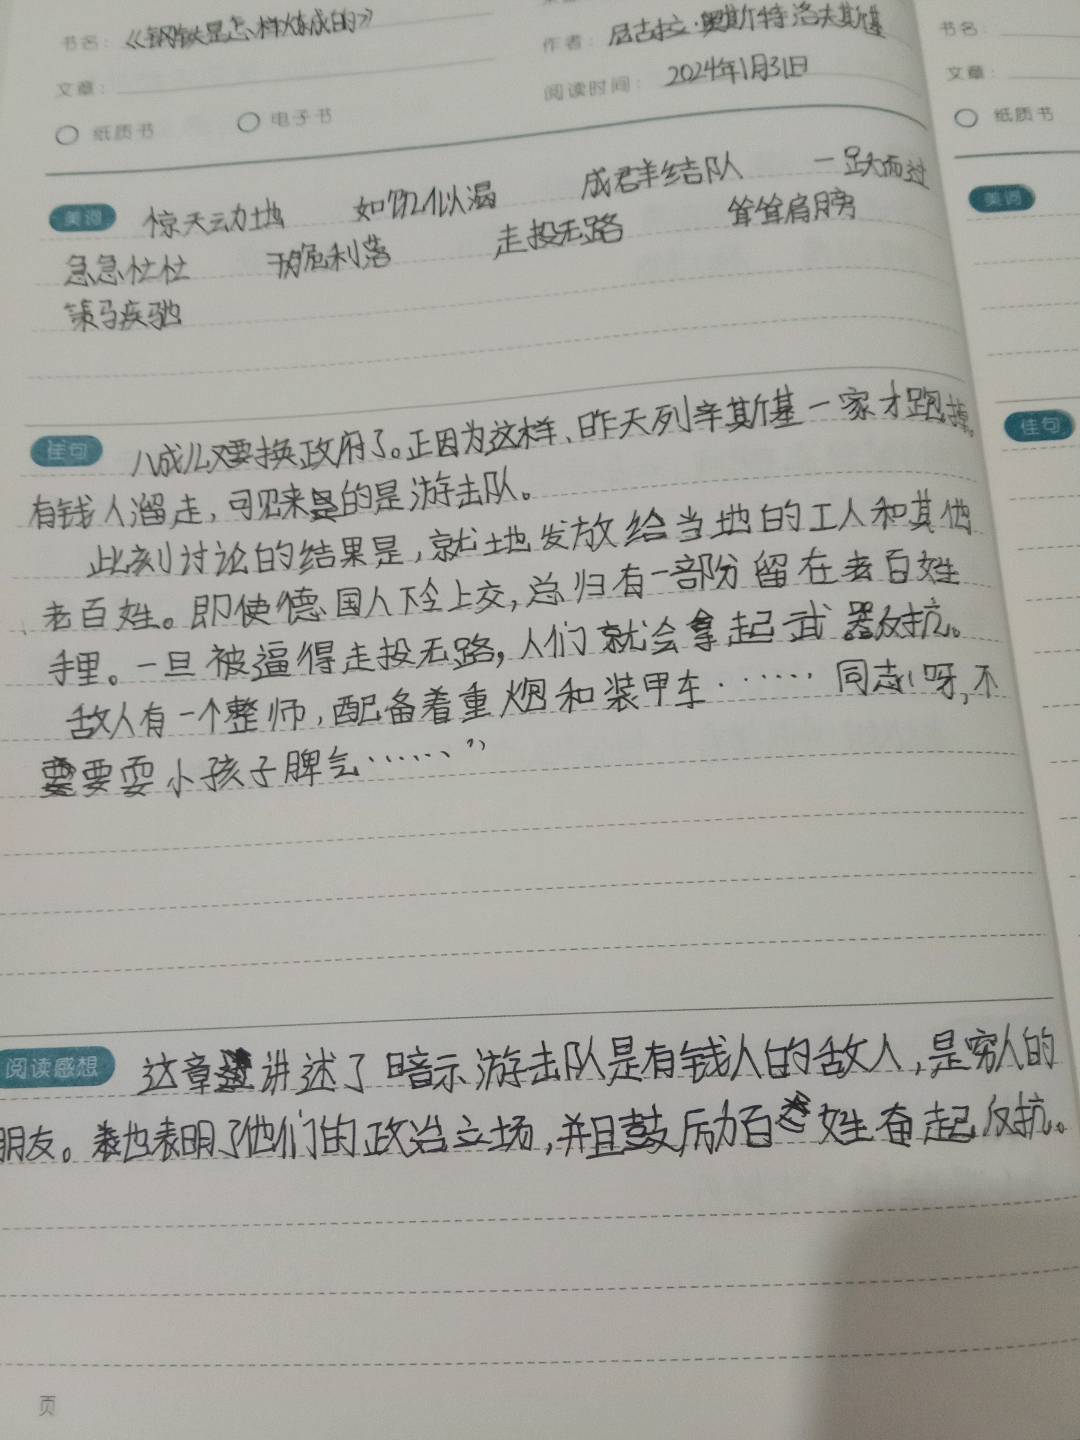 书名：《钢铁是怎样炼成的》
作者：尼古拉·奥斯特洛夫斯基
文章：
阅读时间：2024年1月31日
纸质书 电子书
美词 惊天动地 如饥似渴 成群结队 一跃而过
急急忙忙 干脆利落 走投无路 耸耸肩膀
策马疾驰
佳句 八成儿又要换政府了。正因为这样、昨天列辛斯基一家才跑掉。
有钱人溜走，可见来的是游击队。
此刻讨论的结果是，就地发放给当地的工人和其他
老百姓。即使德国人下令上交，总归有一部分留在老百姓
手里。一旦被逼得走投无路，人们就会拿起武器反抗。
敌人有一个整师，配备着重炮和装甲车……同志呀，不
要耍小孩子脾气……”
阅读感想 这章讲述了暗示游击队是有钱人的敌人，是穷人的
朋友。也表明了他们的政治立场，并且鼓励百姓奋起反抗。
页
书名：
文章：
纸质书
美词
佳句